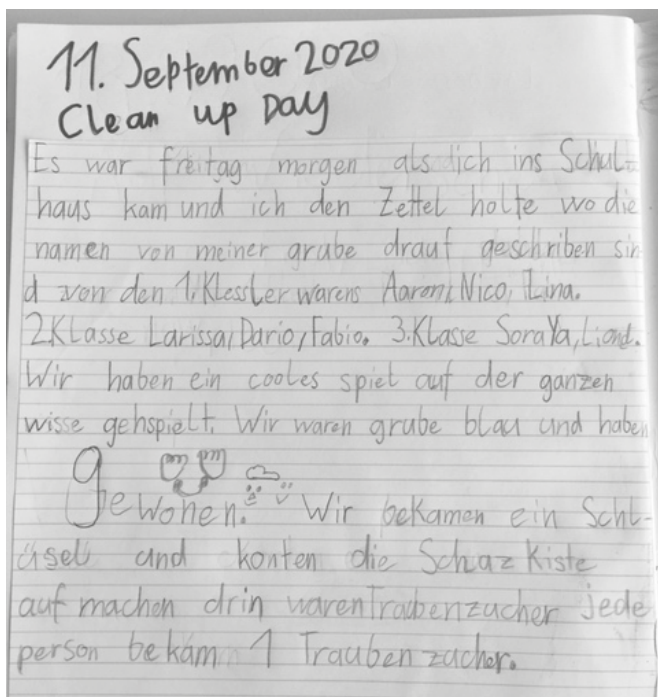 11. September 2020
Clean up Day
Es war freitag morgen als ich ins Schul-
haus kam und ich den Zettel holte wo die
namen von meiner grube drauf geschriben sin
d von den 1. Klessler warens Aaron, Nico, Lina.
2.Klasse Larissa, Dario, Fabio. 3.Klasse SoraYa,
Wir haben ein cooles spiel auf der ganzen
wisse gehspielt. Wir waren grube blau und haben
gewohen. Wir bekamen ein Schl-
üsel und konten die Schazkiste
auf machen drin waren Traubenzucher jede
person bekam 1 Traubenzucher.